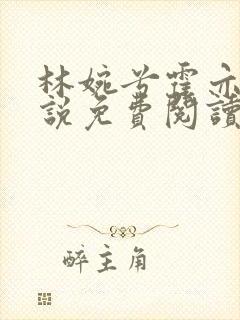 林婉兮霍亦
說免費閱讀
醉主角